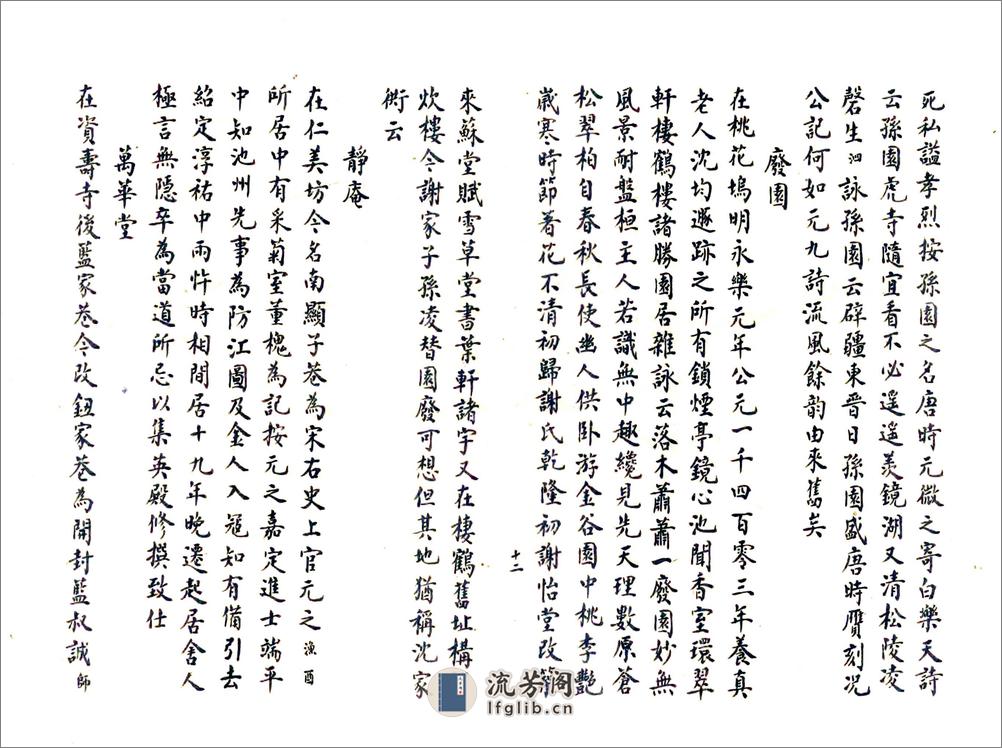 死私謚孝烈按孫園之名唐時元微之寄白樂天詩
云孫園虎寺隨宜看不必遥遥羨鏡湖又清松陵凌
磬生泗詠孫園云辟疆東晋日孫園盛唐時贋刻况
公記何如元九詩流風餘韵由來舊矣
廢園
在桃花塢明永樂元年公元一千四百零三年養真
老人沈均遯跡之所有鎖煙亭鏡心池聞香室環翠
軒樓鶴樓諸勝園居雜詠云落木蕭蕭一廢園妙無
風景耐盤桓主人若識無中趣纔見先天理數原蒼
松翠柏自春秋長使幽人供卧游金谷園中桃李艷
歲寒時節著花不清初歸謝氏乾隆初謝怡堂改築
十二
來蘇堂賦雪草堂書葉軒諸宇又在棲鶴舊址構
炊樓今謝家子孫凌替園廢可想但其地猶稱沈家
衖云
靜庵
在仁美坊今名南顯子巷為宋右史上官元之漁酉
所居中有采菊室董槐為記按元之嘉定進士端平
中知池州先事為防江圖及金人入寇知有備引去
紹定淳祐中兩忤時相閒居十九年晚遷起居舍人
極言無隱卒為當道所忌以集英殿修撰致仕
萬華堂
在資壽寺後藍家巷今改鈕家巷為開封藍叔誠師
流芳阁
lfglib.cn